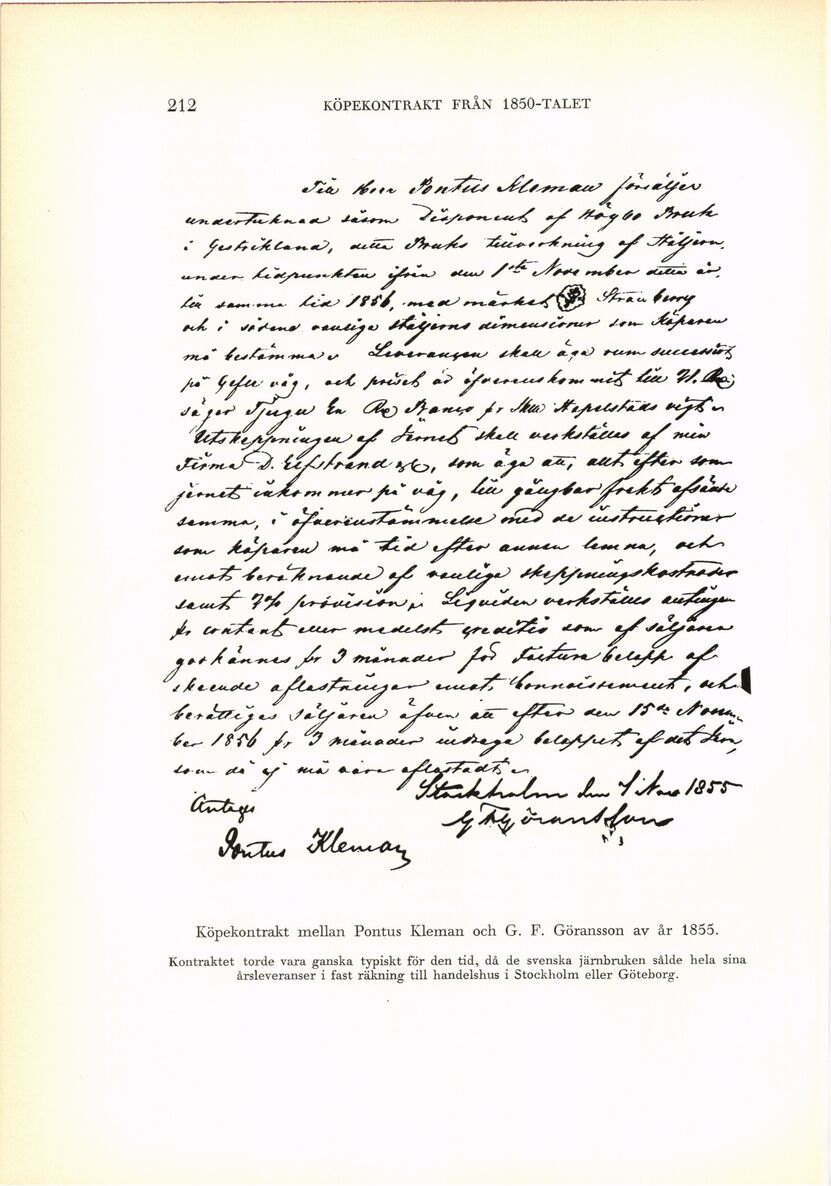 212 KÖPEKONTRAKT FRÅN 1850-TALET
Till Herr Pontus Kleman försäljer
undertecknad såsom Disponent af Högbo Bruk
i Gestrikland, detta Bruks tillverkning af Stäljern
under tidpunkten ifrån den 1sta November detta år,
till samma tid 1856, med märket Strawberry
och i sådane vanliga stäljerns dimensioner som Köparen
må bestämma. Leverancen skall äga rum successivt
på Gefle våg, och priset är öfverenskommit till 21.
säger Tjugu En Banco pr Skll Stapelstads vigt.
Utskeppningen af Jernet skall verkställas af min
Firma D. Elfstrand & Co, som äga att, allt efter som
jernet inkommer på våg, till gängbar frakt afsända
samma, i öfverensstämmelse med de instructioner
som köparen må tid efter annan lemna, och
emot beräknande af vanliga skeppningskostnader
samt 2% provision. Liquiden verkställes antingen
pr contant eller medelst creditiv som af säljaren
godkännes pr 3 månader för Factura belopp af
skeende aflastningar emot Connoissement, och
berättigas säljaren äfven att efter den 15de Novem-
ber 1856 pr 3 månader indraga beloppet af det Jern,
som då ej må vara aflastadt.
Stockholm den 1 Nov 1855
Antages
G F Göransson
Pontus Kleman
Köpekontrakt mellan Pontus Kleman och G. F. Göransson av år 1855.
Kontraktet torde vara ganska typiskt för den tid, då de svenska järnbruken sålde hela sina
årsleveranser i fast räkning till handelshus i Stockholm eller Göteborg.